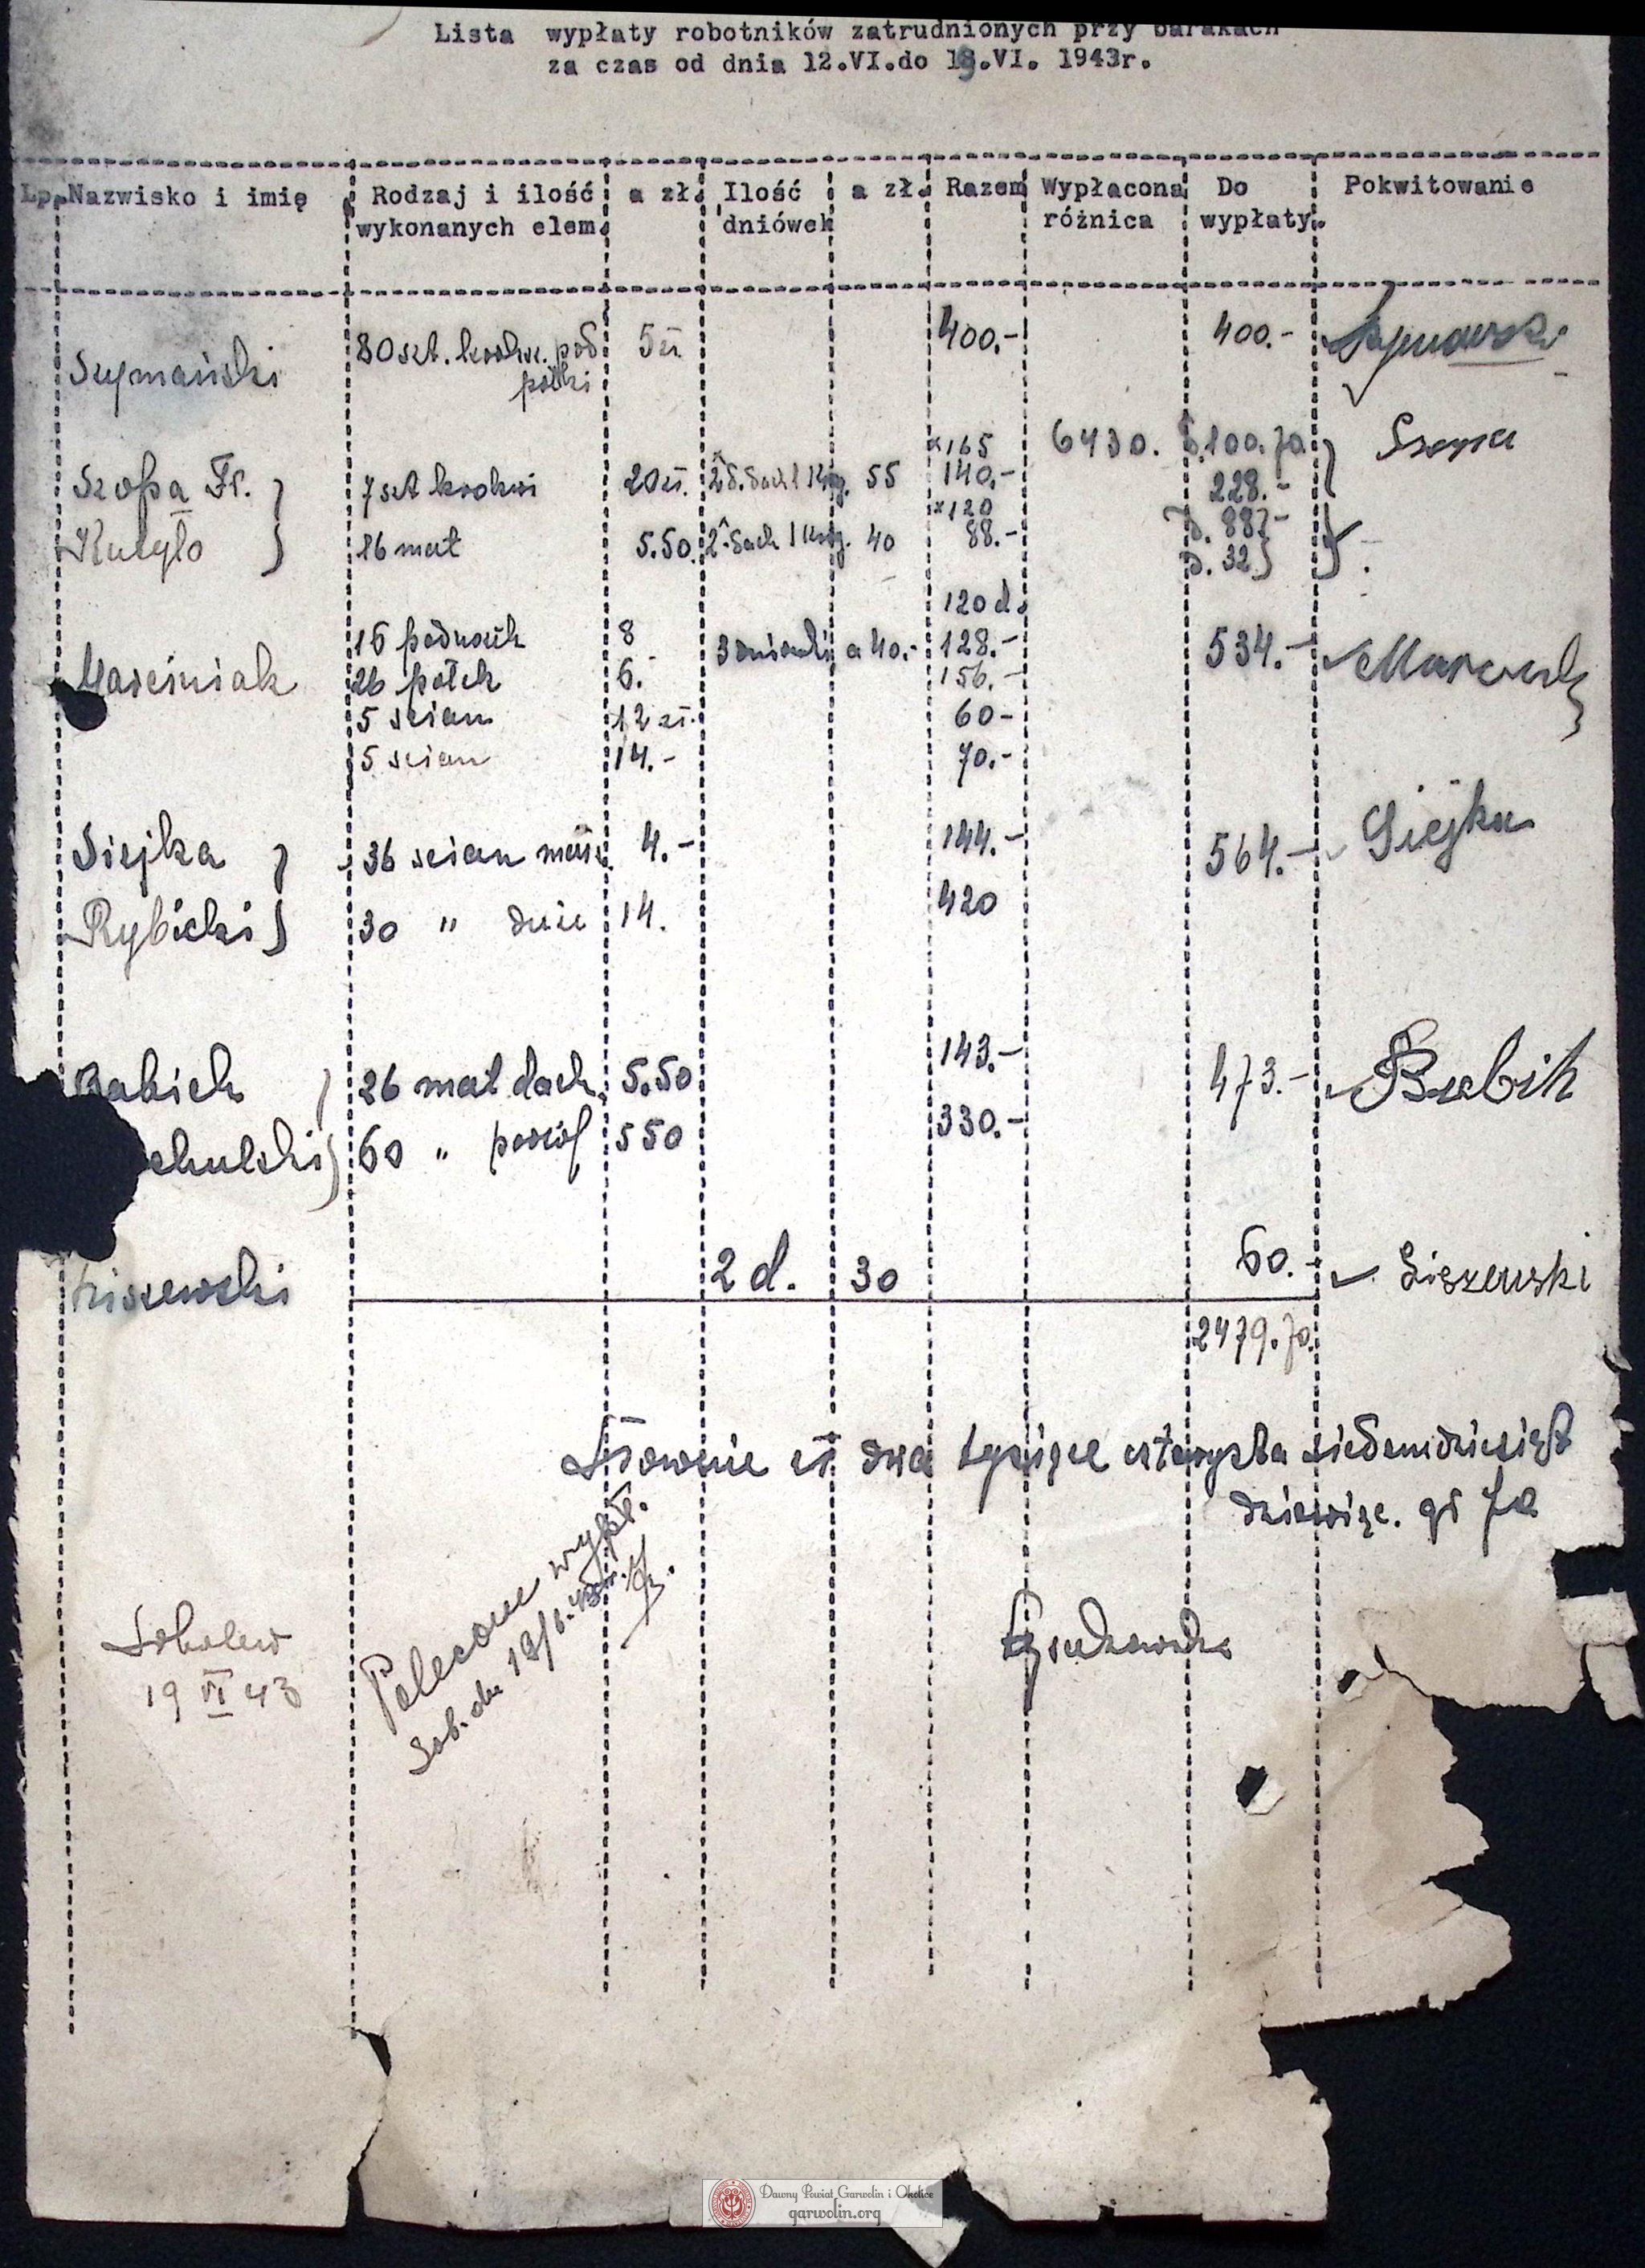 Lista wypłaty robotników zatrudnionych przy barakach
za czas od dnia 12.VI.do 19.VI. 1943r.
Lp. Nazwisko i imię Rodzaj i ilość wykonanych elem. a zł. Ilość dniówek a zł. Razem Wypłacona różnica Do wypłaty. Pokwitowanie
Szymański 80 szt. pod półki 5 zł. 400.- 400.-
165 6430. 100.70
Szopa Fr. 7 szt krokwi 20 zł. 55 140.- 228.- Szopa
120 88
Kuryło 16 mat 5.50 40 88.- 32
120 d.
Marciniak 16 8 3 dniówki a 40.- 128.- 534.-
26 półek 6.- 156.-
5 scian 12 zł. 60-
5 scian 14.- 70.-
Siejka 36 scian 4.- 144.- 564.- Siejka
Rybicki 30 " duże 14. 420
Babich 26 mat dach. 5.50 143.- 473.- Babih
chulski 60 " 550 330.-
Liszewski 2 d. 30 60.- Liszewski
2479.70.
Słownie zł dwa tysiące czterysta siedemdziesiąt
dziewięć. gr 70
Polecone wypł.
Sob. dn. 19/6.43
Sobolew
19 VI 43
Dawny Powiat Garwolin i Okolice
garwolin.org